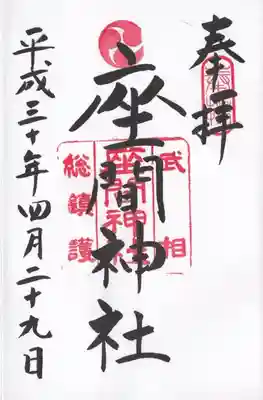 奉拝
座間神社
武相
座間神社
総鎮護
平成三十年四月二十九日